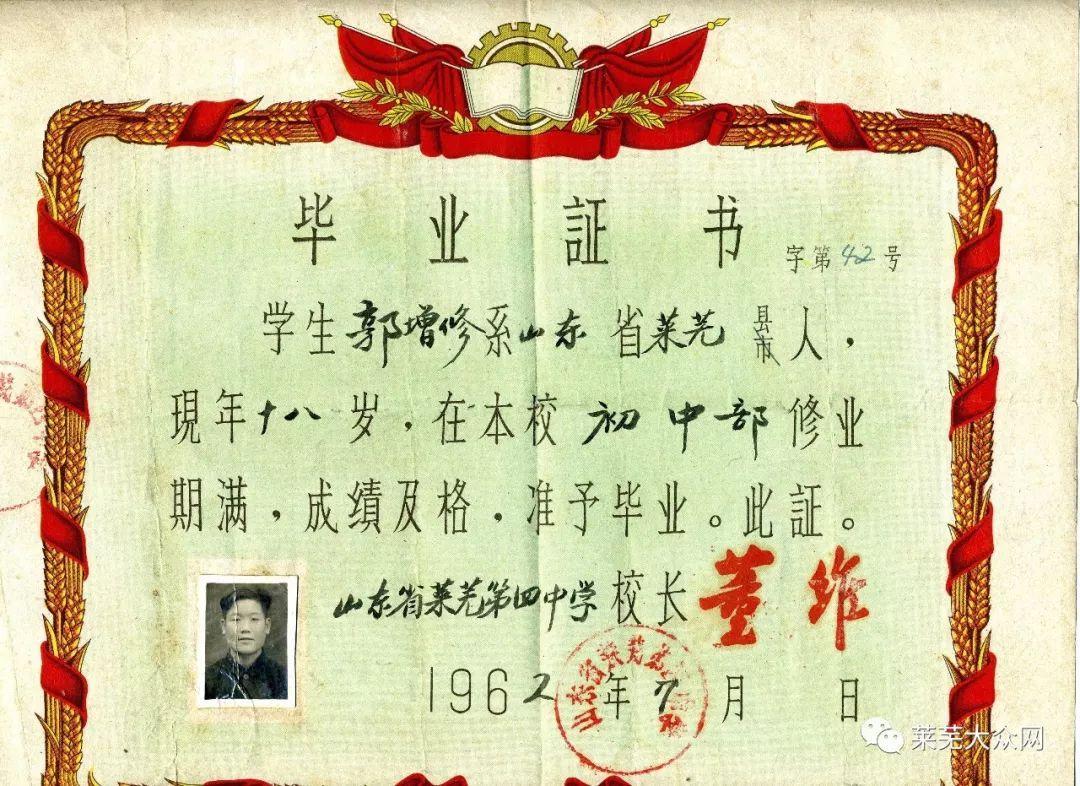 毕业証书
字第42号
学生郭增修系山东省莱芜县市人，
現年十八岁，在本校初中部修业
期满，成绩及格，准予毕业。此証。
山东省莱芜第四中学校长董维
1962年7月 日
山东省莱芜
莱芜大众网